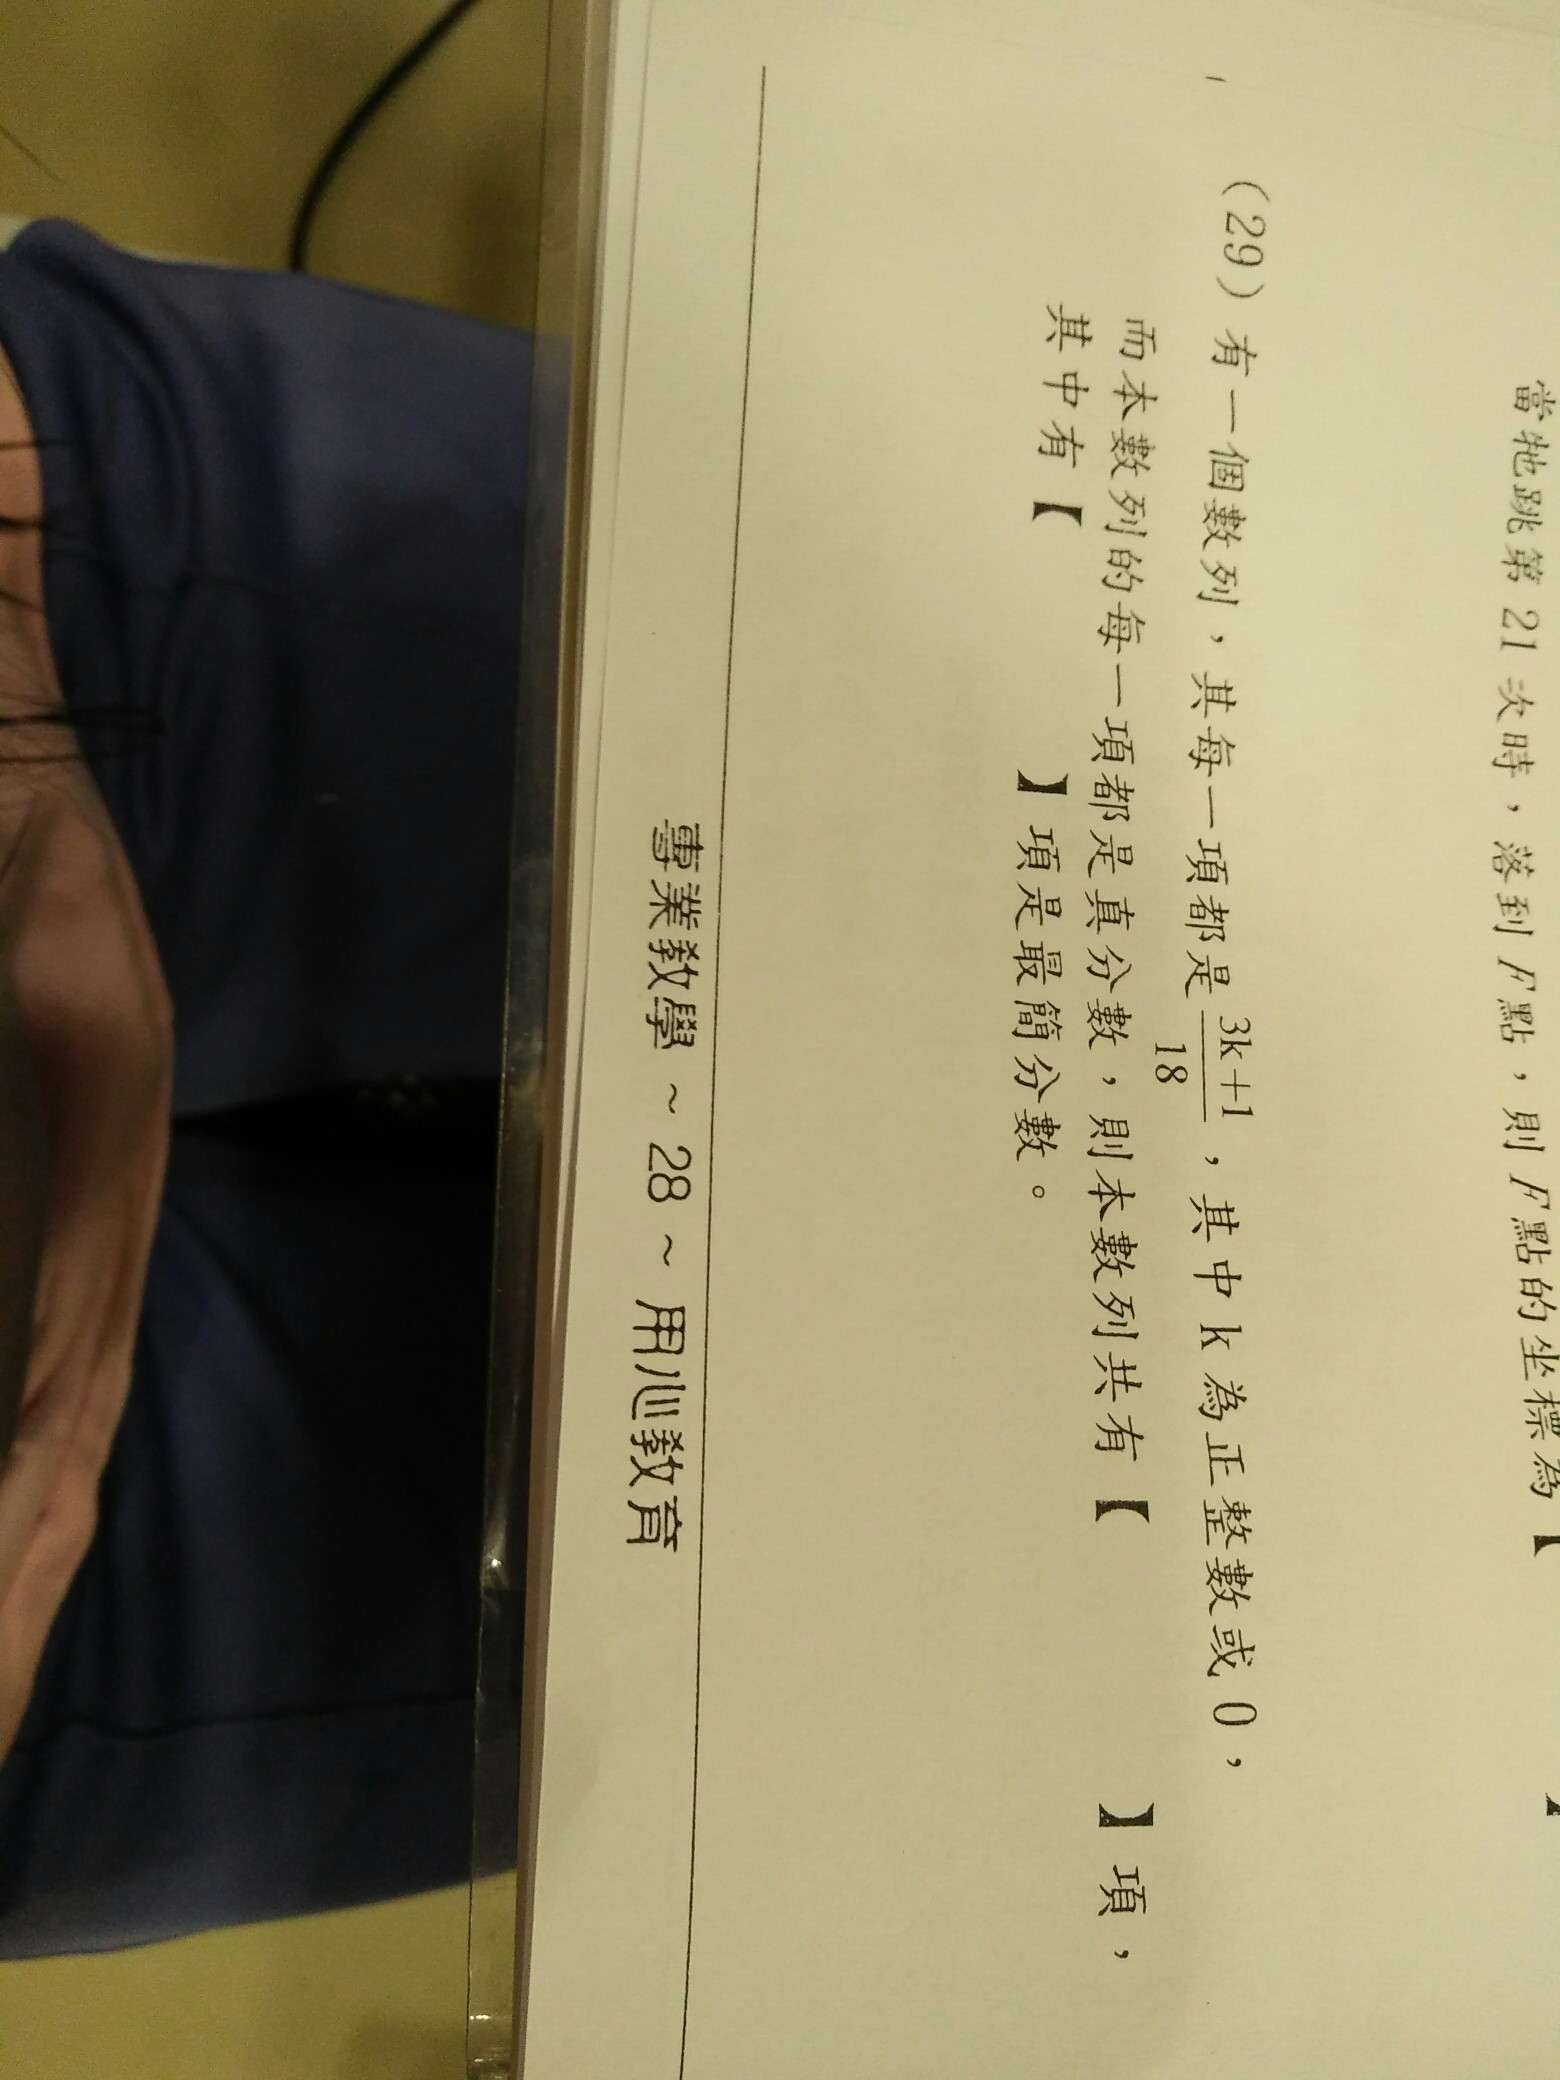 當牠跳第 21 次時，落到 F 點，則 F 點的坐標為【
】
(29) 有一個數列，其每一項都是 3k+1/18，其中 k 為正整數或 0，
而本數列的每一項都是真分數，則本數列共有【 】項，
其中有【 】項是最簡分數。
專業教學 ~ 28 ~ 用心教育